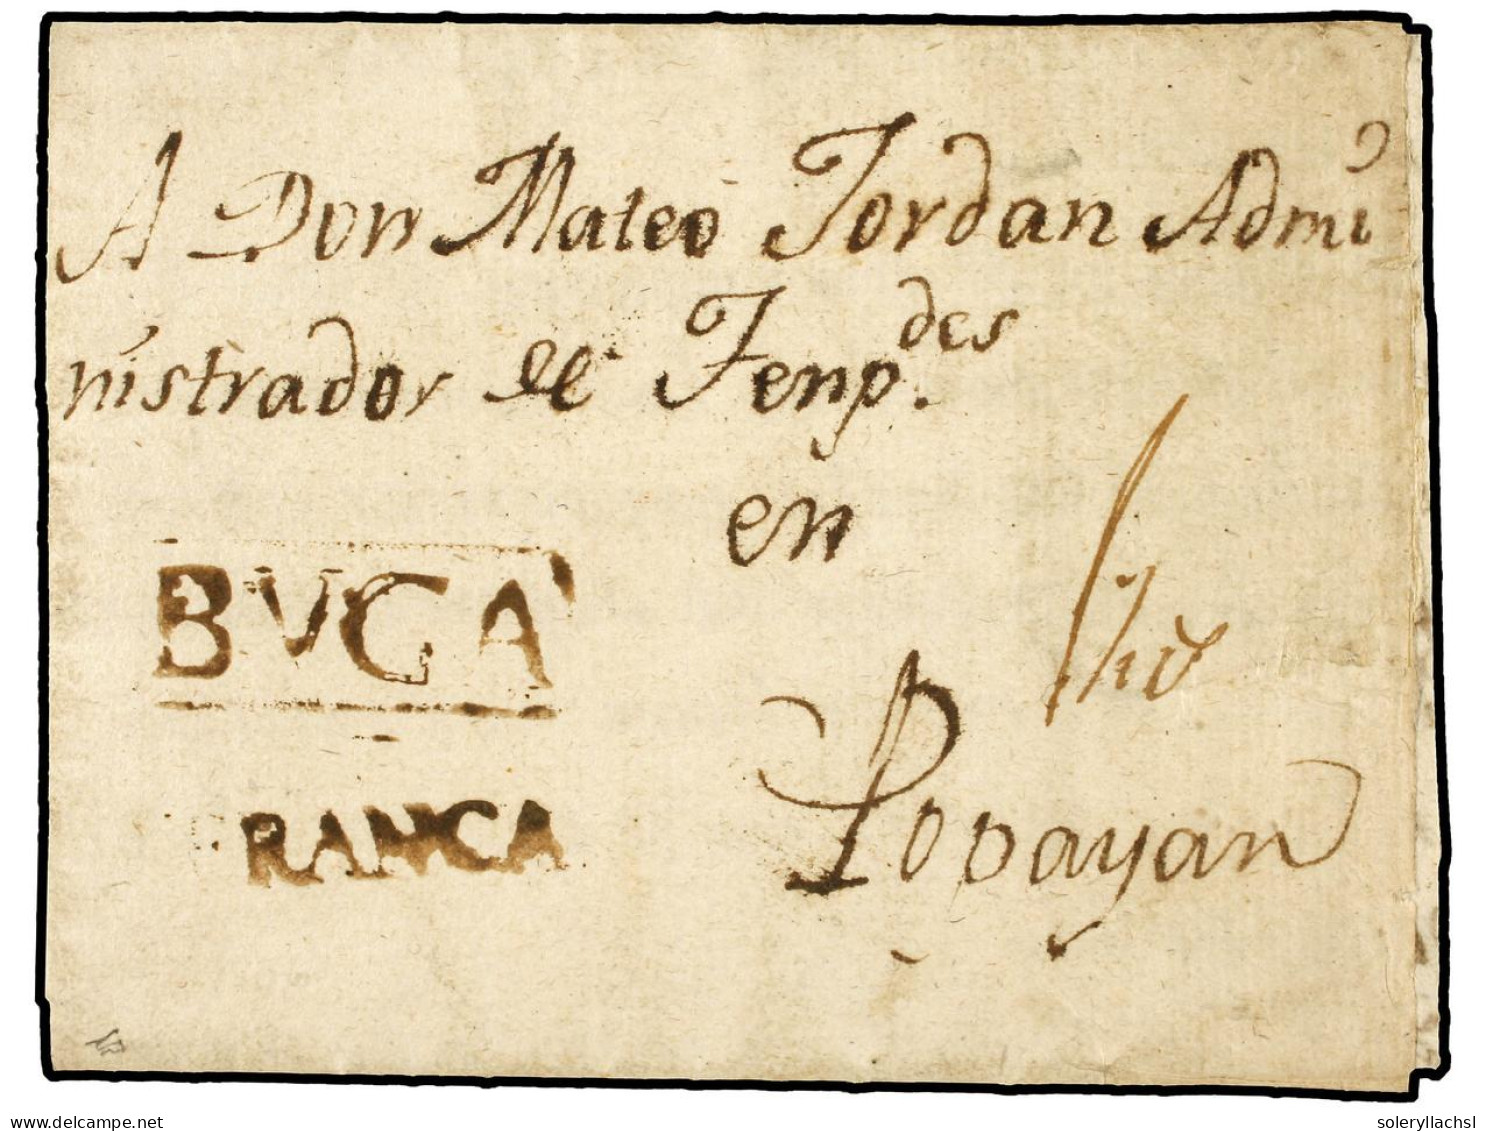 A Don Mateo Jordan Admi
nistrador de Temp.des
en
Popayan
BVGA
RANCA
www.delcampe.net
soleryllachsl